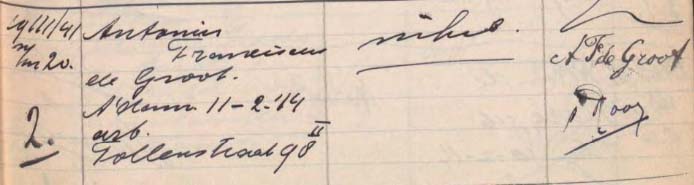 19/III/41
Antonius
Franciscus
de Groot.
A'dam. 11-2-'14
arb.
Tollenstraat 98 II
2.
nihil.
A F de Groot